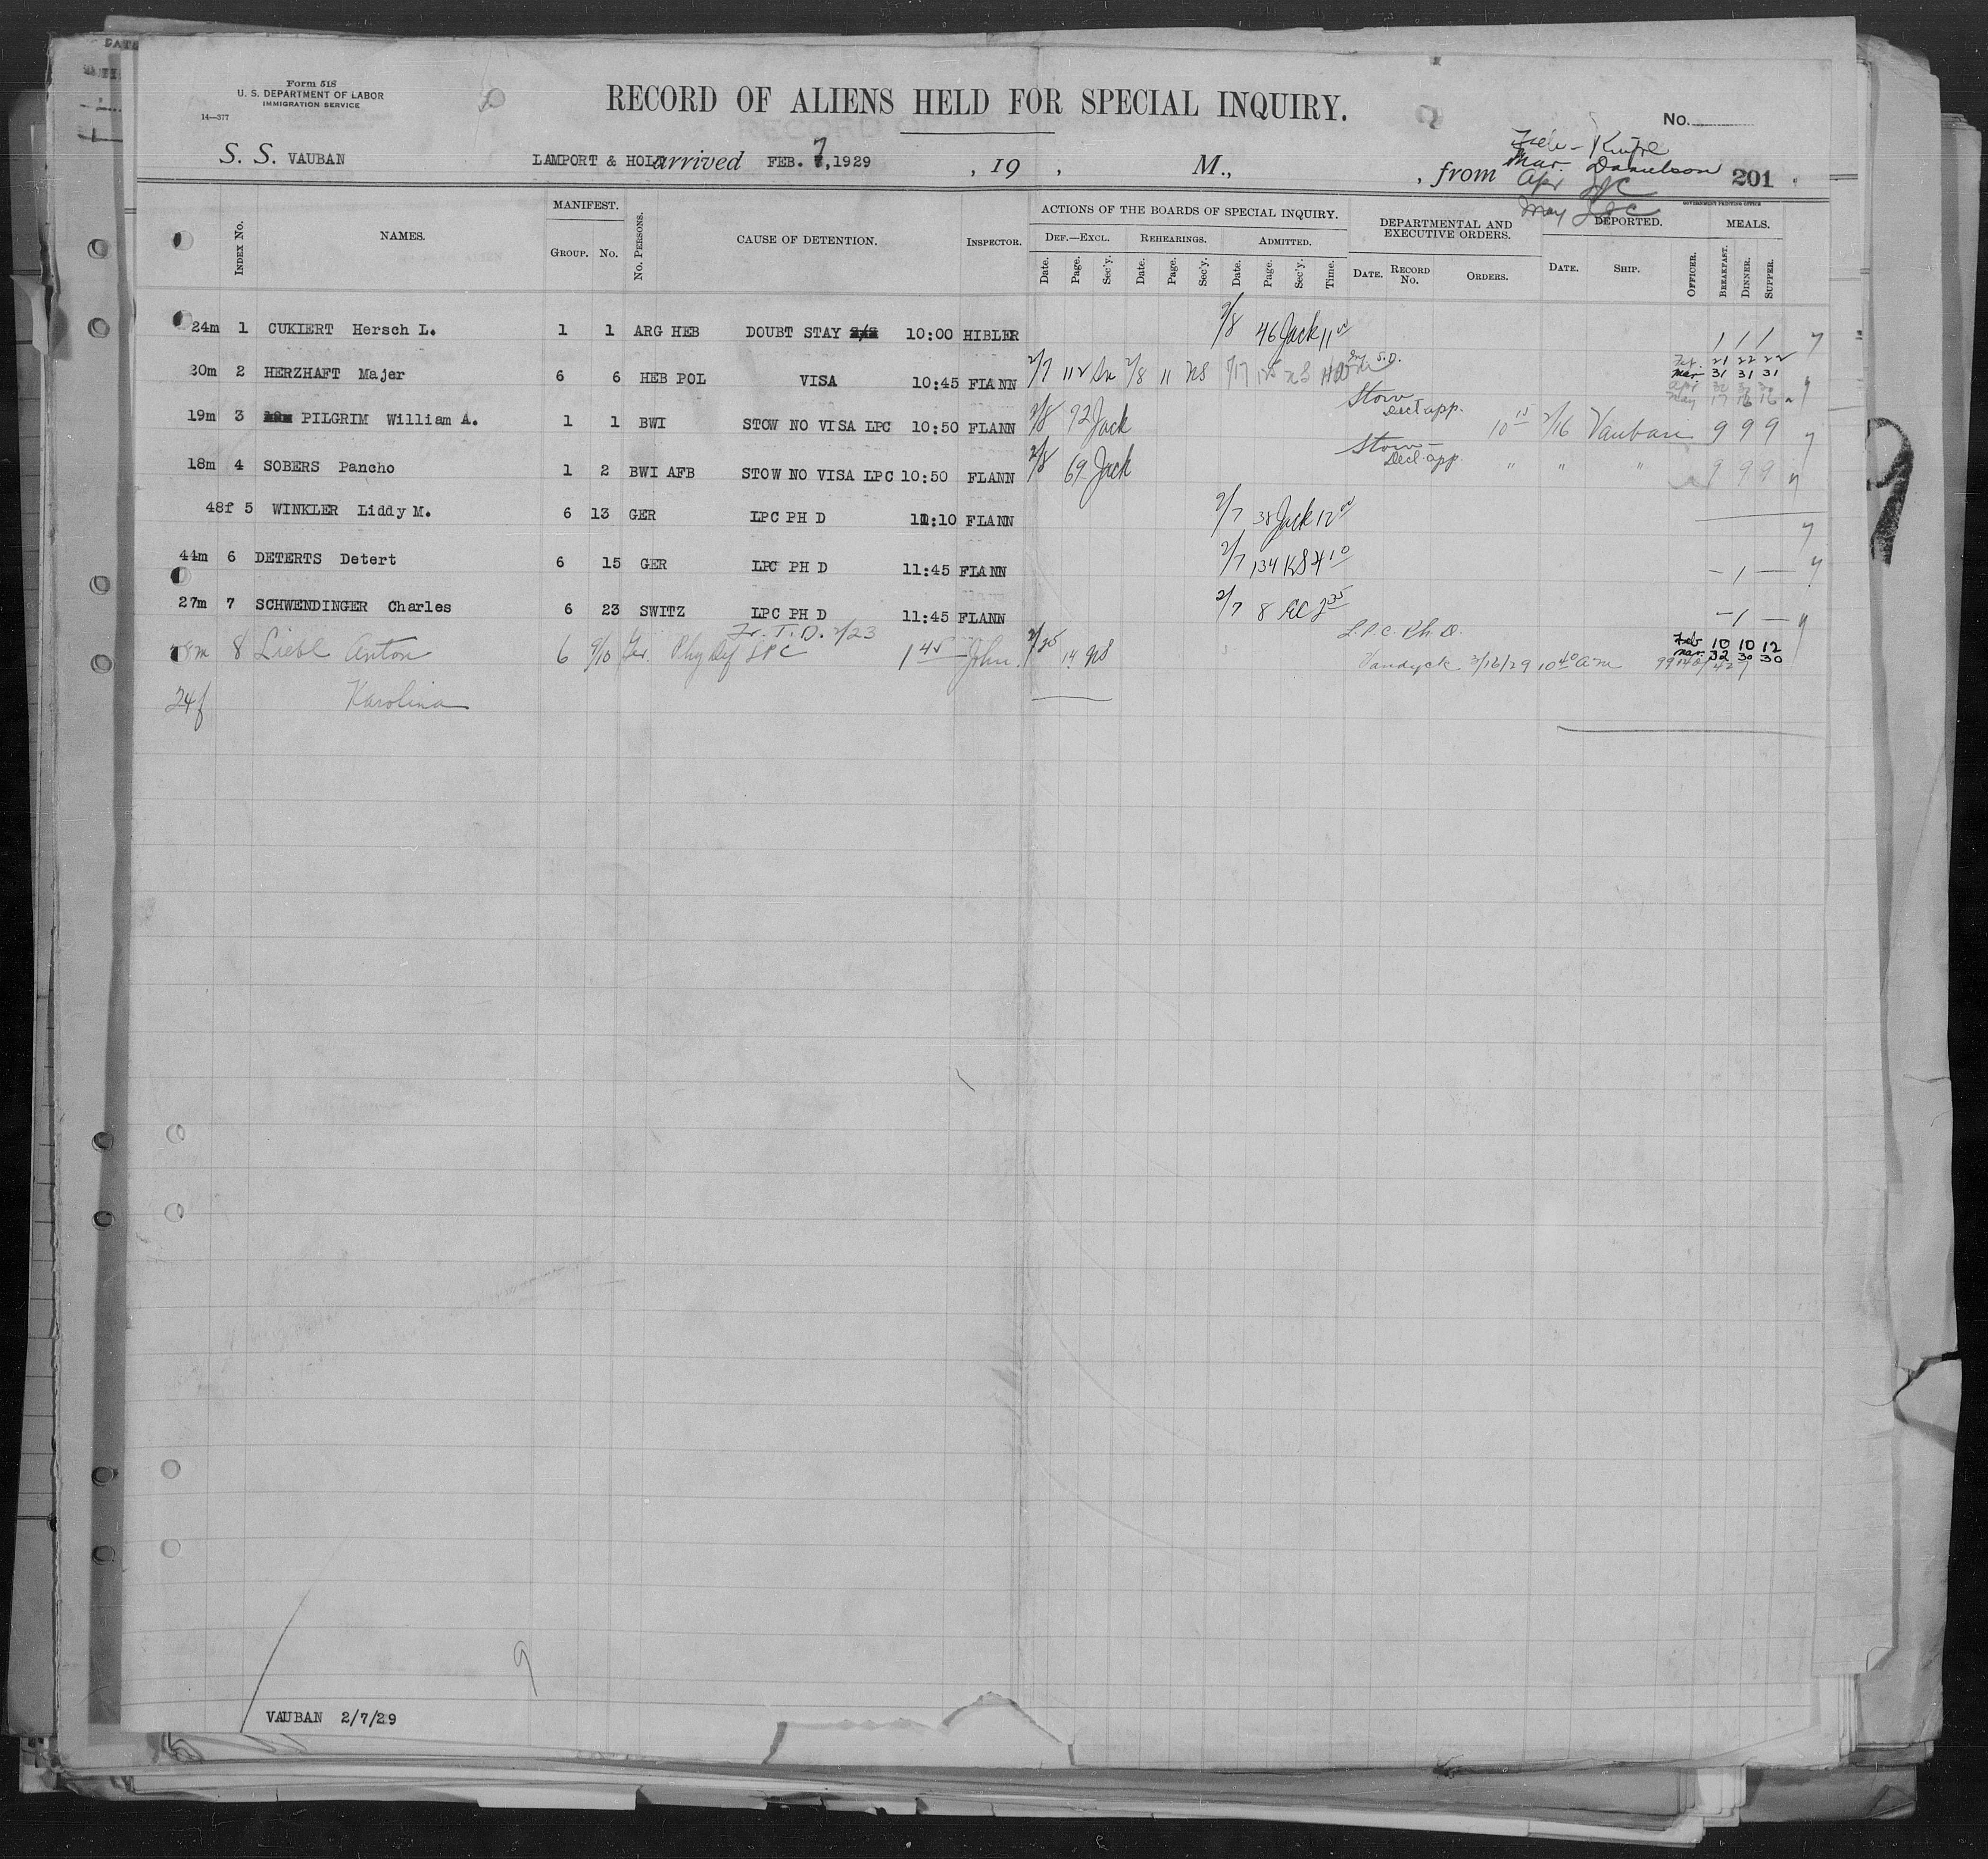 Form 518
U. S. DEPARTMENT OF LABOR
IMMIGRATION SERVICE
14—377
RECORD OF ALIENS HELD FOR SPECIAL INQUIRY.
No.
S. S. VAUBAN LAMPORT & HOLT arrived FEB. 7, 1929 , 19 , M., , from 201
Mar. Danielson
Apr
May
GOVERNMENT PRINTING OFFICE
Index No. NAMES. MANIFEST. Group. No. No. Persons. CAUSE OF DETENTION. Inspector. ACTIONS OF THE BOARDS OF SPECIAL INQUIRY. Def.—Excl. Date. Page. Sec'y. Rehearings. Date. Page. Sec'y. Admitted. Date. Page. Sec'y. Time. DEPARTMENTAL AND EXECUTIVE ORDERS. Date. Record No. Orders. DEPORTED. Date. Ship. Officer. MEALS. Breakfast. Dinner. Supper.
24m 1 CUKIERT Hersch L. 1 1 ARG HEB DOUBT STAY 10:00 HIBLER 2/8 46 Jack 11 00 1 1 1
30m 2 HERZHAFT Majer 6 6 HEB POL VISA 10:45 FLANN 2/7 112 2/8 11 NS 5/17 125 NS S.D. Feb. 21 22 22
Mar 31 31 31
Apr 30
May 17 16 16
19m 3 PILGRIM William A. 1 1 BWI STOW NO VISA LPC 10:50 FLANN 2/8 92 Jack Stow Decl app. 10 15 2/16 Vauban 9 9 9
18m 4 SOBERS Pancho 1 2 BWI AFB STOW NO VISA LPC 10:50 FLANN 2/8 69 Jack Stow— Decl. app. " " " 9 9 9
48f 5 WINKLER Liddy M. 6 13 GER LPC PH D 11:10 FLANN 2/7 38 Jack 12 00
44m 6 DETERTS Detert 6 15 GER LPC PH D 11:45 FLANN 2/7 134 KS 4 10 — 1 —
27m 7 SCHWENDINGER Charles 6 23 SWITZ LPC PH D 11:45 FLANN 2/7 8 EC 2 35 — 1 —
Fr. T. D. 2/23 L.P.C. Ph. D. Feb 10 10 12
8 Liebl Anton 6 9/10 Ger. Phy Def LPC 1 45 John. 2/25 14 NS Vandyck 3/16/29 10 40 am 99140/427 Mar. 32 30 30
24f Karolina
VAUBAN 2/7/29
9